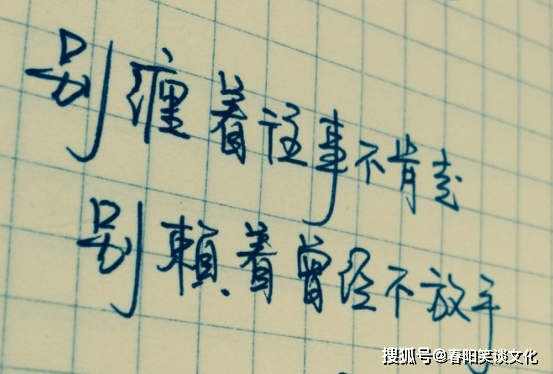 别缠着往事不肯走
别赖着曾经不放手
搜狐号@春阳笑谈文化